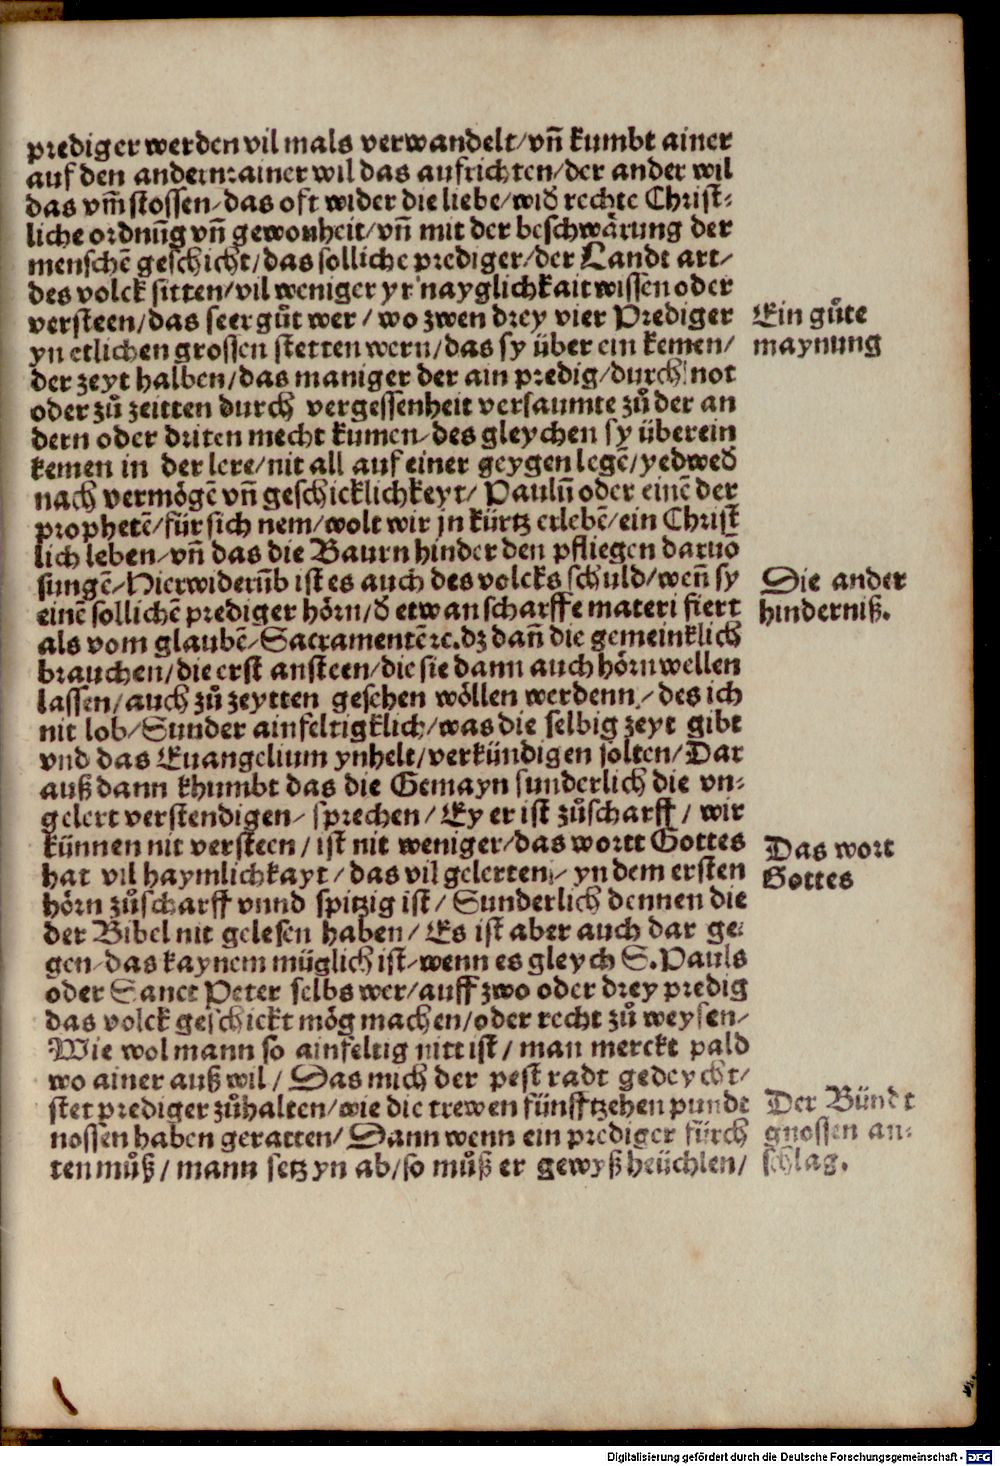 prediger werden vil mals verwandelt/ vñ kumbt ainer
auf den andern: ainer wil das aufrichten/ der ander wil
das vm̃stossen/ das oft wider die liebe/ wiď rechte Christ-
liche ordnũg vñ gewonheit/ vñ mit der beschwärung der
menschẽ geschicht/ das solliche prediger/ der Landt art/
des volck sitten/ vil weniger yr nayglichkait wissen oder
versteen/ das seer gůt wer/ wo zwen drey vier Prediger
yn etlichen grossen stetten wern/ das sy über ein kemen/
der zeyt halben/ das maniger der ain predig/ durch not
oder zů zeitten durch vergessenheit versaumte zů der an
dern oder driten mecht kumen/ des gleychen sy überein
kemen in der lere/ nit all auf einer geygen legẽ/ yedweď
nach vermögẽ vñ geschicklichkeyt/ Paulũ oder einẽ der
prophetẽ/ für sich nem/ wolt wir jn kürtz erlebẽ/ ein Christ
lich leben/ vñ das die Baurn hinder den pfliegen daruõ
sungẽ/ Hierwiderũb ist es auch des volcks schuld/ weñ sy
einẽ sollichẽ prediger hörn/ ď etwan scharffe materi fiert
als vom glaubẽ/ Sacramentẽ ꝛc. dz dañ die gemeinklich
brauchen/ die erst ansteen/ die sie dann auch hörn wellen
lassen/ auch zů zeytten gesehen wöllen werdenn/ des ich
nit lob/ Sunder ainfeltigklich/ was die selbig zeyt gibt
vnd das Euangelium ynhelt/ verkündigen solten/ Dar
auß dann khumbt das die Gemayn sunderlich die vn-
gelert verstendigen/ sprechen/ Ey er ist zůscharff/ wir
künnen nit versteen/ ist nit weniger/ das wortt Gottes
hat vil haymlichkayt/ das vil gelerten/ yn dem ersten
hörn zůscharff vnnd spitzig ist/ Sunderlich dennen die
der Bibel nit gelesen haben/ Es ist aber auch dar ge-
gen/ das kaynem müglich ist/ wenn es gleych S. Pauls
oder Sanct Peter selbs wer/ auff zwo oder drey predig
das volck geschickt mög machen/ oder recht zů weysen/
Wie wol mann so ainfeltig nitt ist/ man merckt pald
wo ainer auß wil/ Das mich der pest radt gedeycht/
stet prediger zůhalten/ wie die trewen fünfftzehen pundt
nossen haben geratten/ Dann wenn ein prediger fürch
ten můß/ mann setz yn ab/ so můß er gewyß heüchlen/
Ein gůte
maynung
Die ander
hinderniß.
Das wort
Gottes
Der Bündt
gnossen an-
schlag.
Digitalisierung gefördert durch die Deutsche Forschungsgemeinschaft - DFG